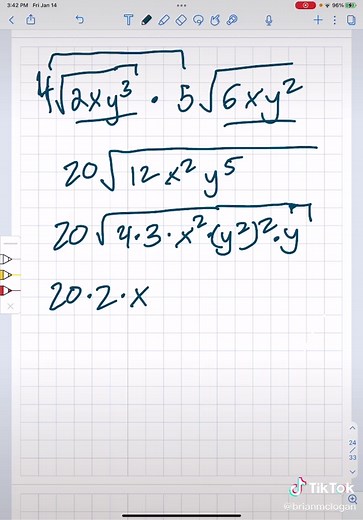 3:42 PM Fri Jan 14
96%
4√2xy³ · 5√6xy²
20√12x²y⁵
20√4·3·x²·(y²)²·y
20·2·x
24
33
TikTok
@brianmclogan